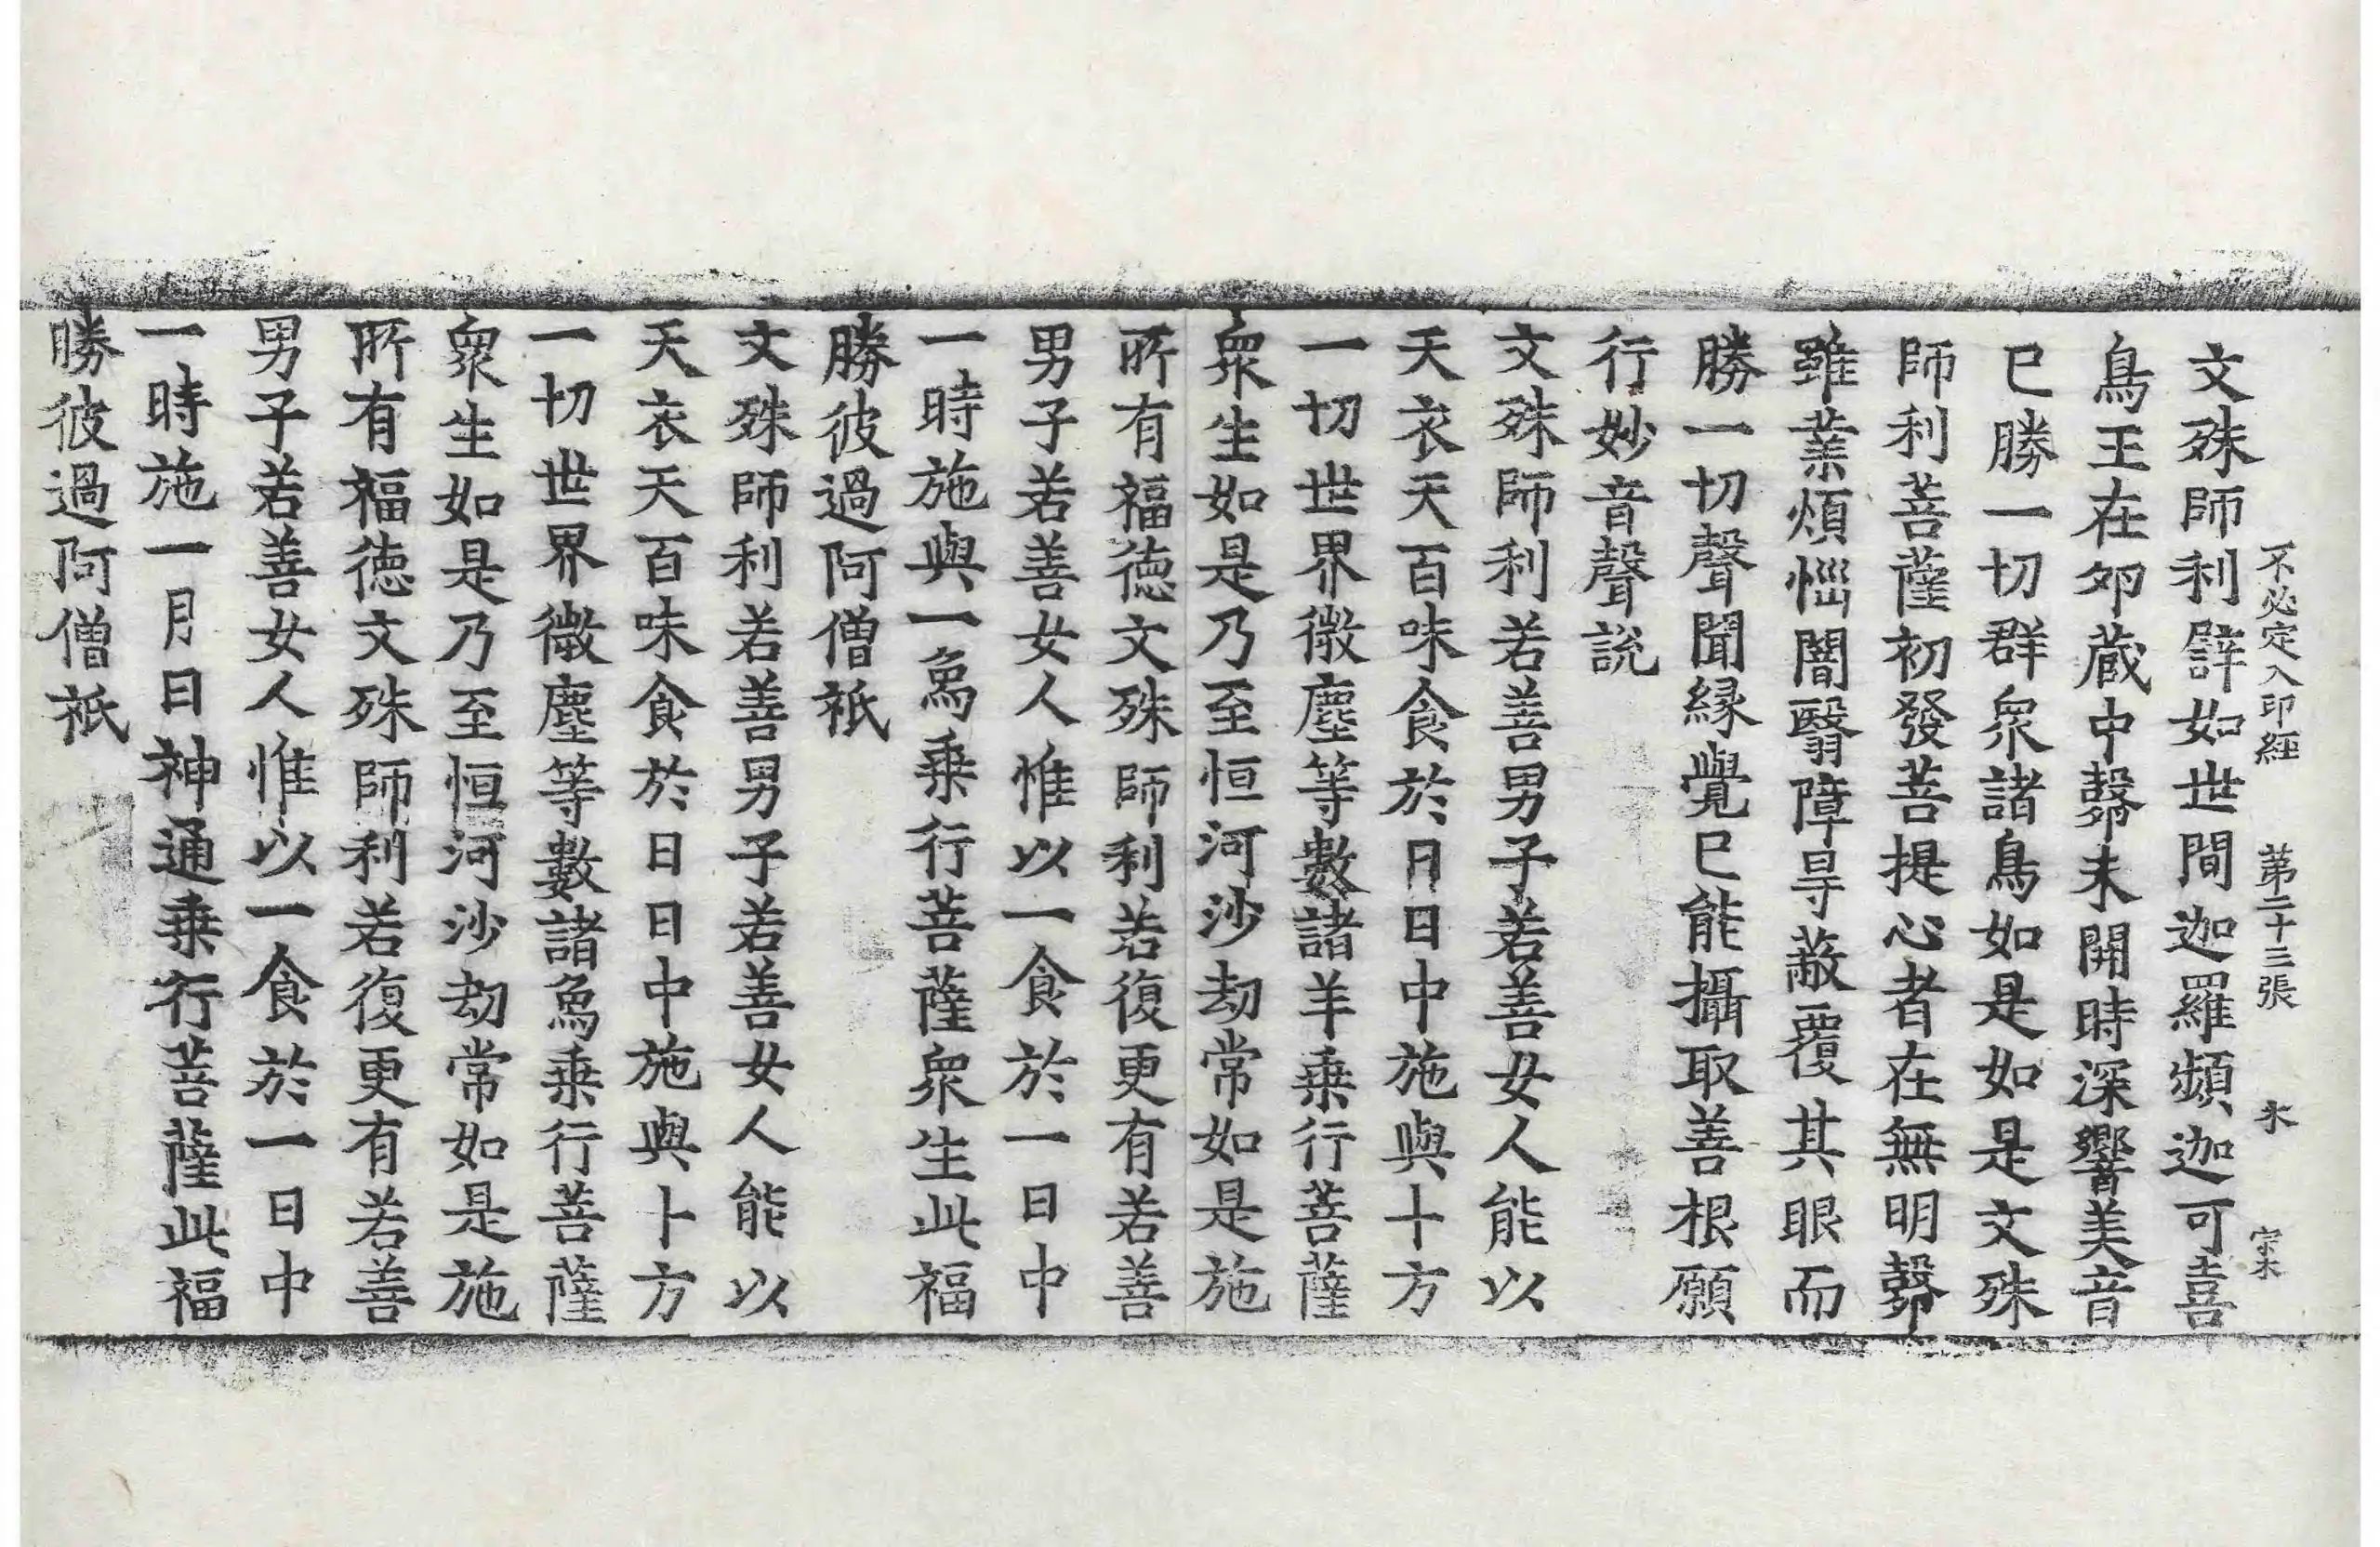 不必定入印經 第二十三張 木 宋木
文殊師利辟如世間迦羅頻迦可喜
鳥王在夘蔵中㲉未開時深響美音
已勝一切群衆諸鳥如是如是文殊
師利菩薩初發菩提心者在無明㲉
雖業煩惱闇翳障㝵蔽覆其眼而
勝一切聲聞緣覺已能攝取善根願
行妙音聲說
文殊師利若善男子若善女人能以
天衣天百味食於日日中施與十方
一切世界微塵等數諸羊乗行菩薩
衆生如是乃至恒河沙劫常如是施
所有福德文殊師利若復更有若善
男子若善女人惟以一食於一日中
一時施與一爲乗行菩薩衆生此福
勝彼過阿僧祇
文殊師利若善男子若善女人能以
天衣天百味食於日日中施與十方
一切世界微塵等數諸爲乗行菩薩
衆生如是乃至恒河沙劫常如是施
所有福德文殊師利若復更有若善
男子若善女人惟以一食於一日中
一時施一月日神通乗行菩薩此福
勝彼過阿僧祇